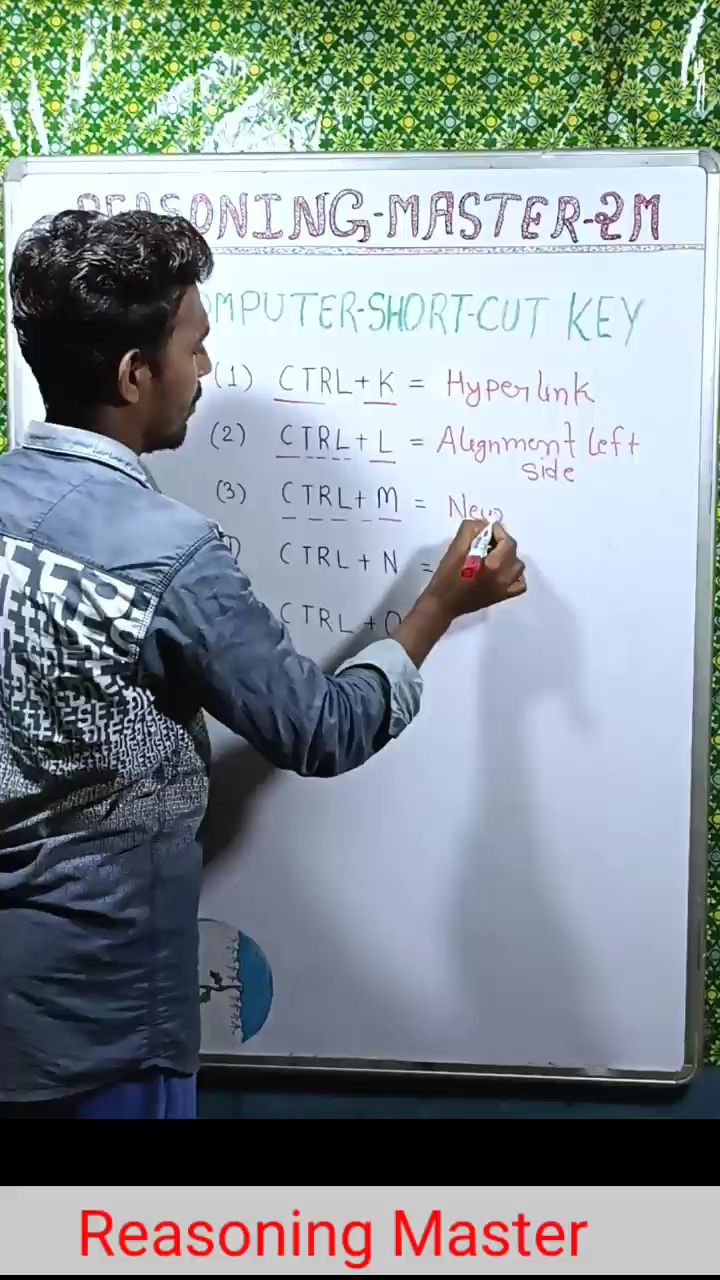 REASONING-MASTER-2M
COMPUTER-SHORT-CUT KEY
(1) CTRL+K = Hyperlink
(2) CTRL+L = Alignment left
side
(3) CTRL+M = New
CTRL+N =
CTRL+O
Reasoning Master